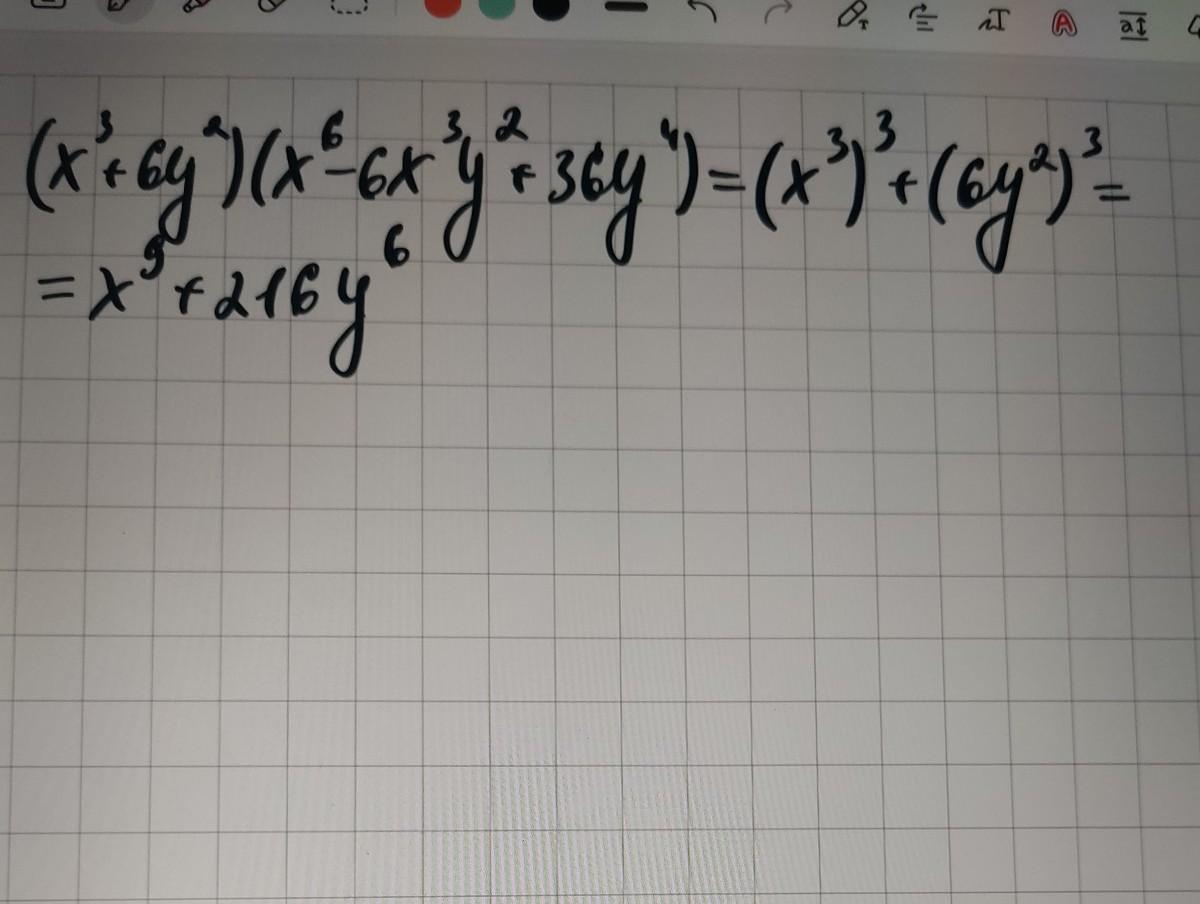 (x³+6y²)(x⁶-6x³y²+36y⁴)=(x³)³+(6y²)³=
=x⁹+216y⁶